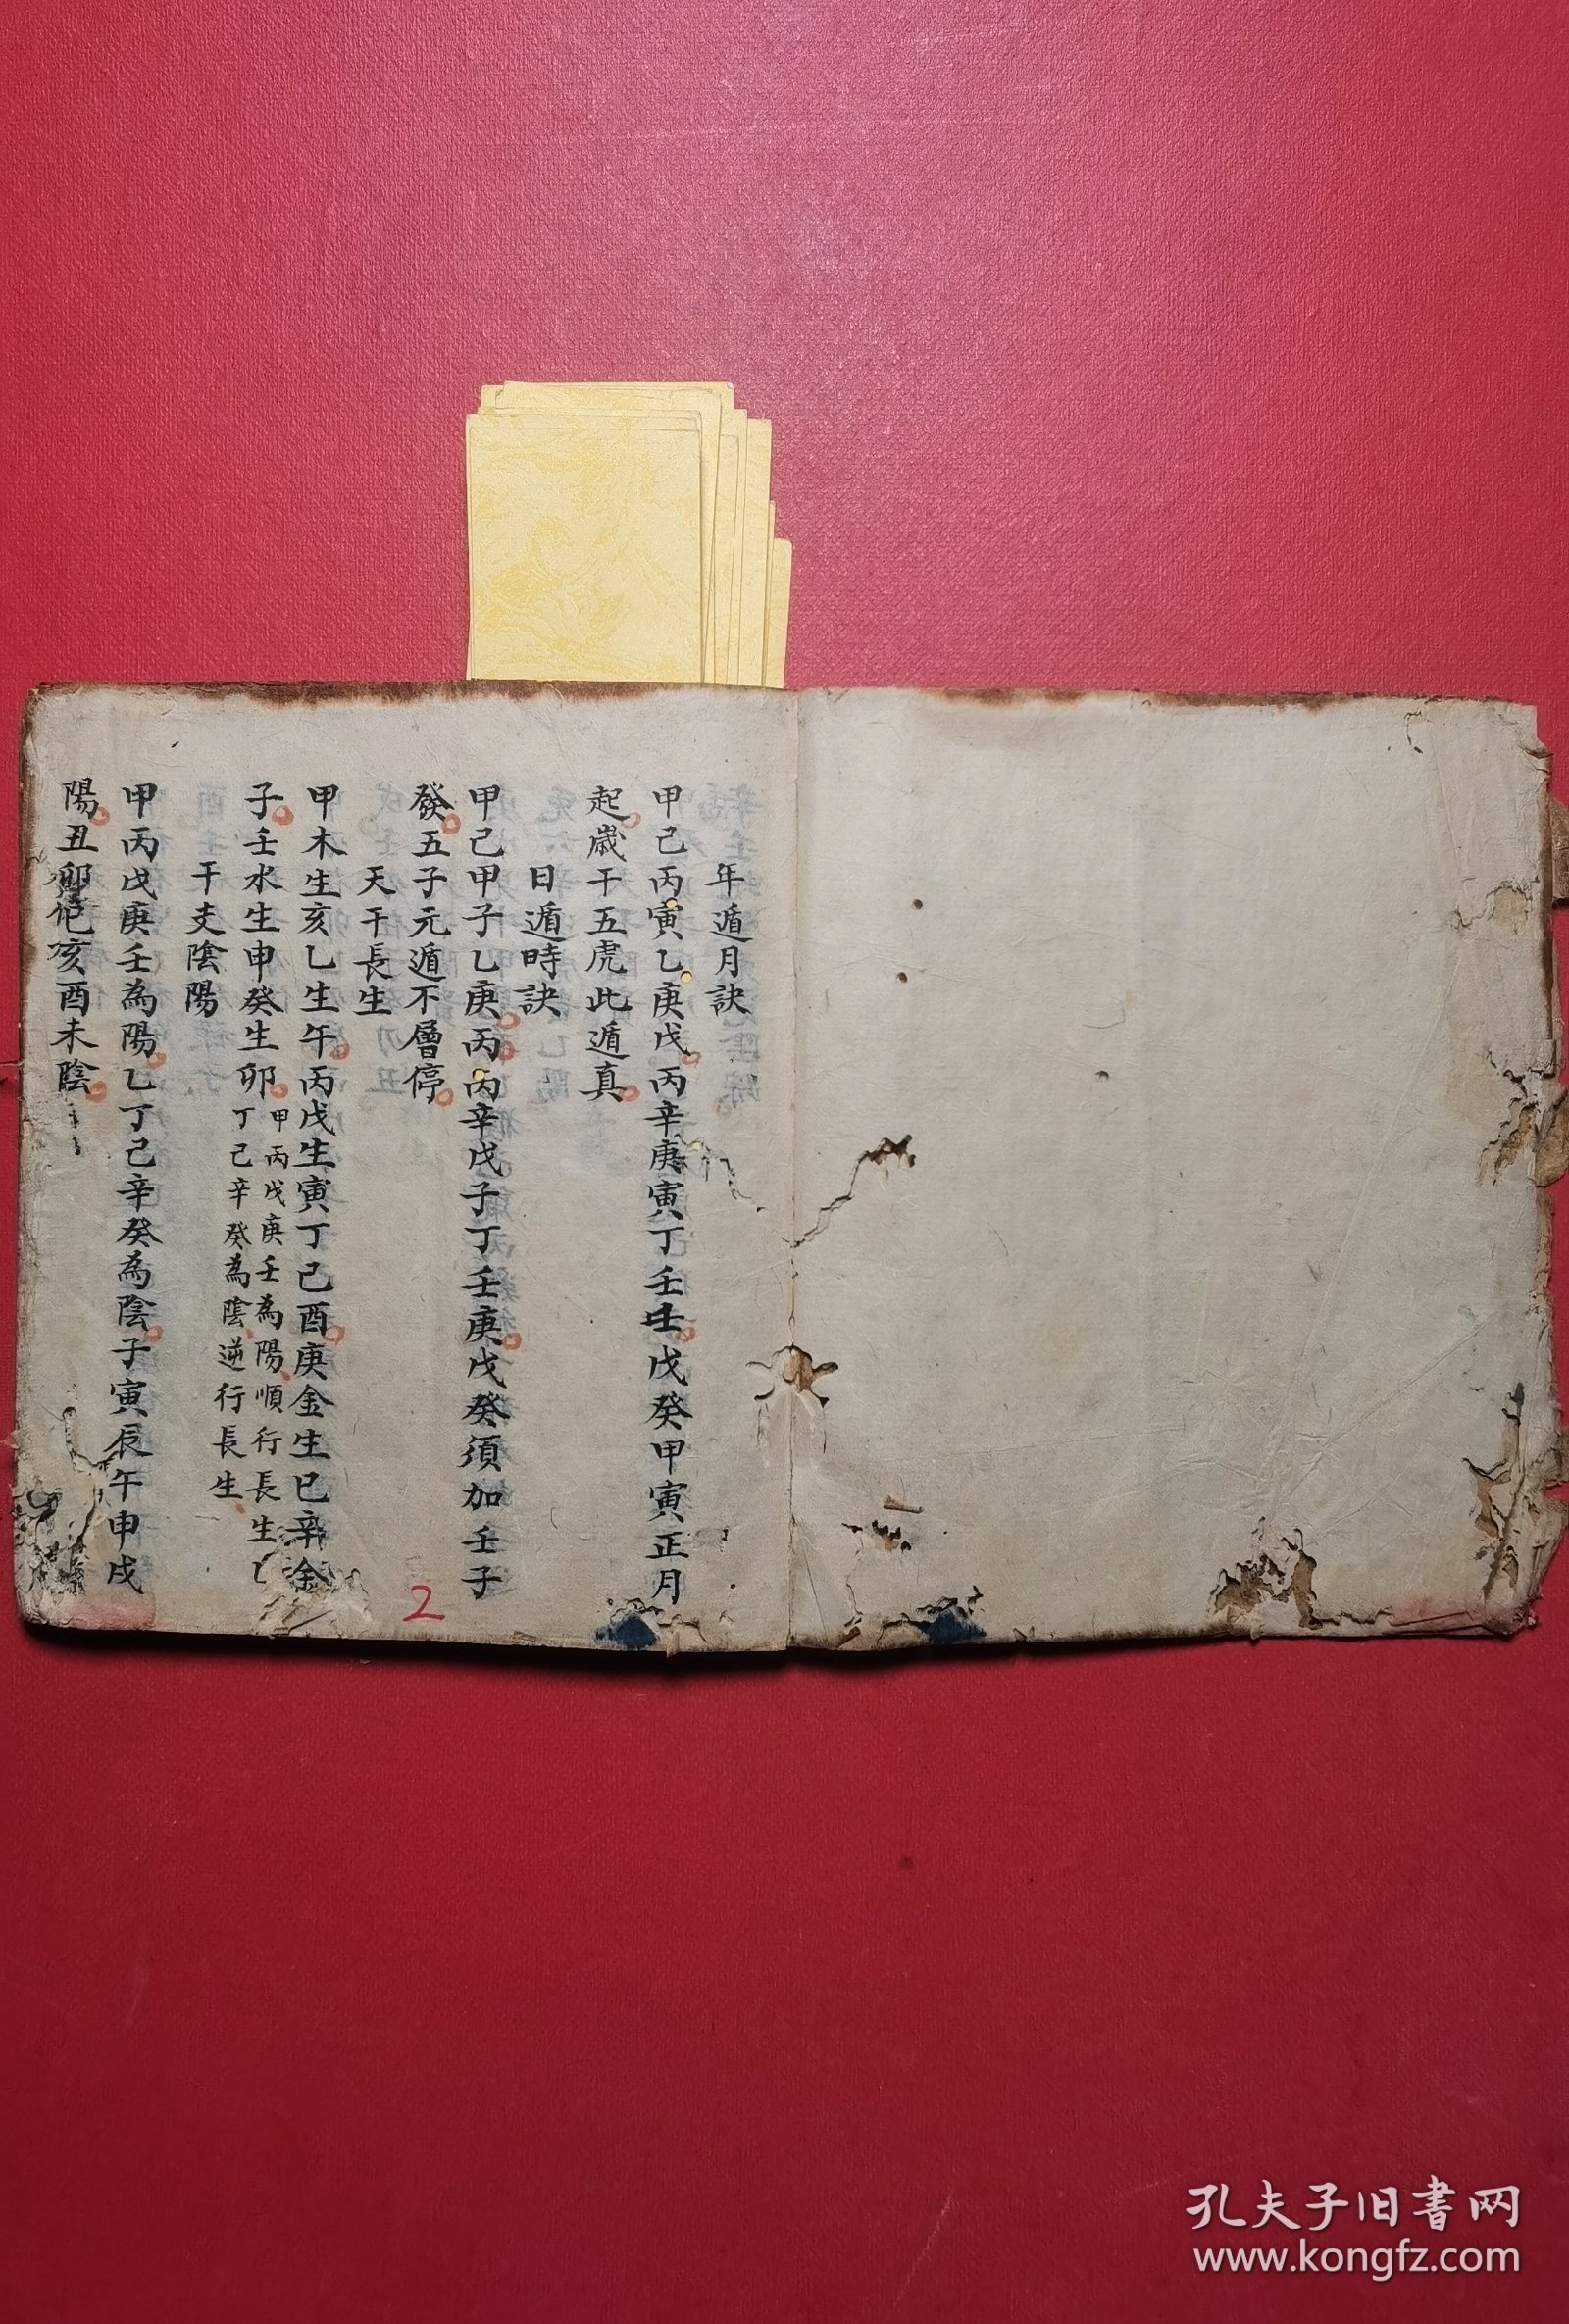 年遁月訣
甲己丙寅乙庚戊丙辛庚寅丁壬壬戊癸甲寅正月
起歲干五虎此遁真
日遁時訣
甲己甲子乙庚丙丙辛戊子丁壬庚戊癸須加壬子
發五子元遁不層停
天干長生
甲木生亥乙生午丙戊生寅丁己酉庚金生巳辛金
子壬水生申癸生卯
甲丙戊庚壬為陽順行長生
丁己辛癸為陰逆行長生
干支陰陽
甲丙戊庚壬為陽乙丁己辛癸為陰子寅辰午申戌
陽丑卯巳亥酉未陰
2
孔夫子旧书网
www.kongfz.com